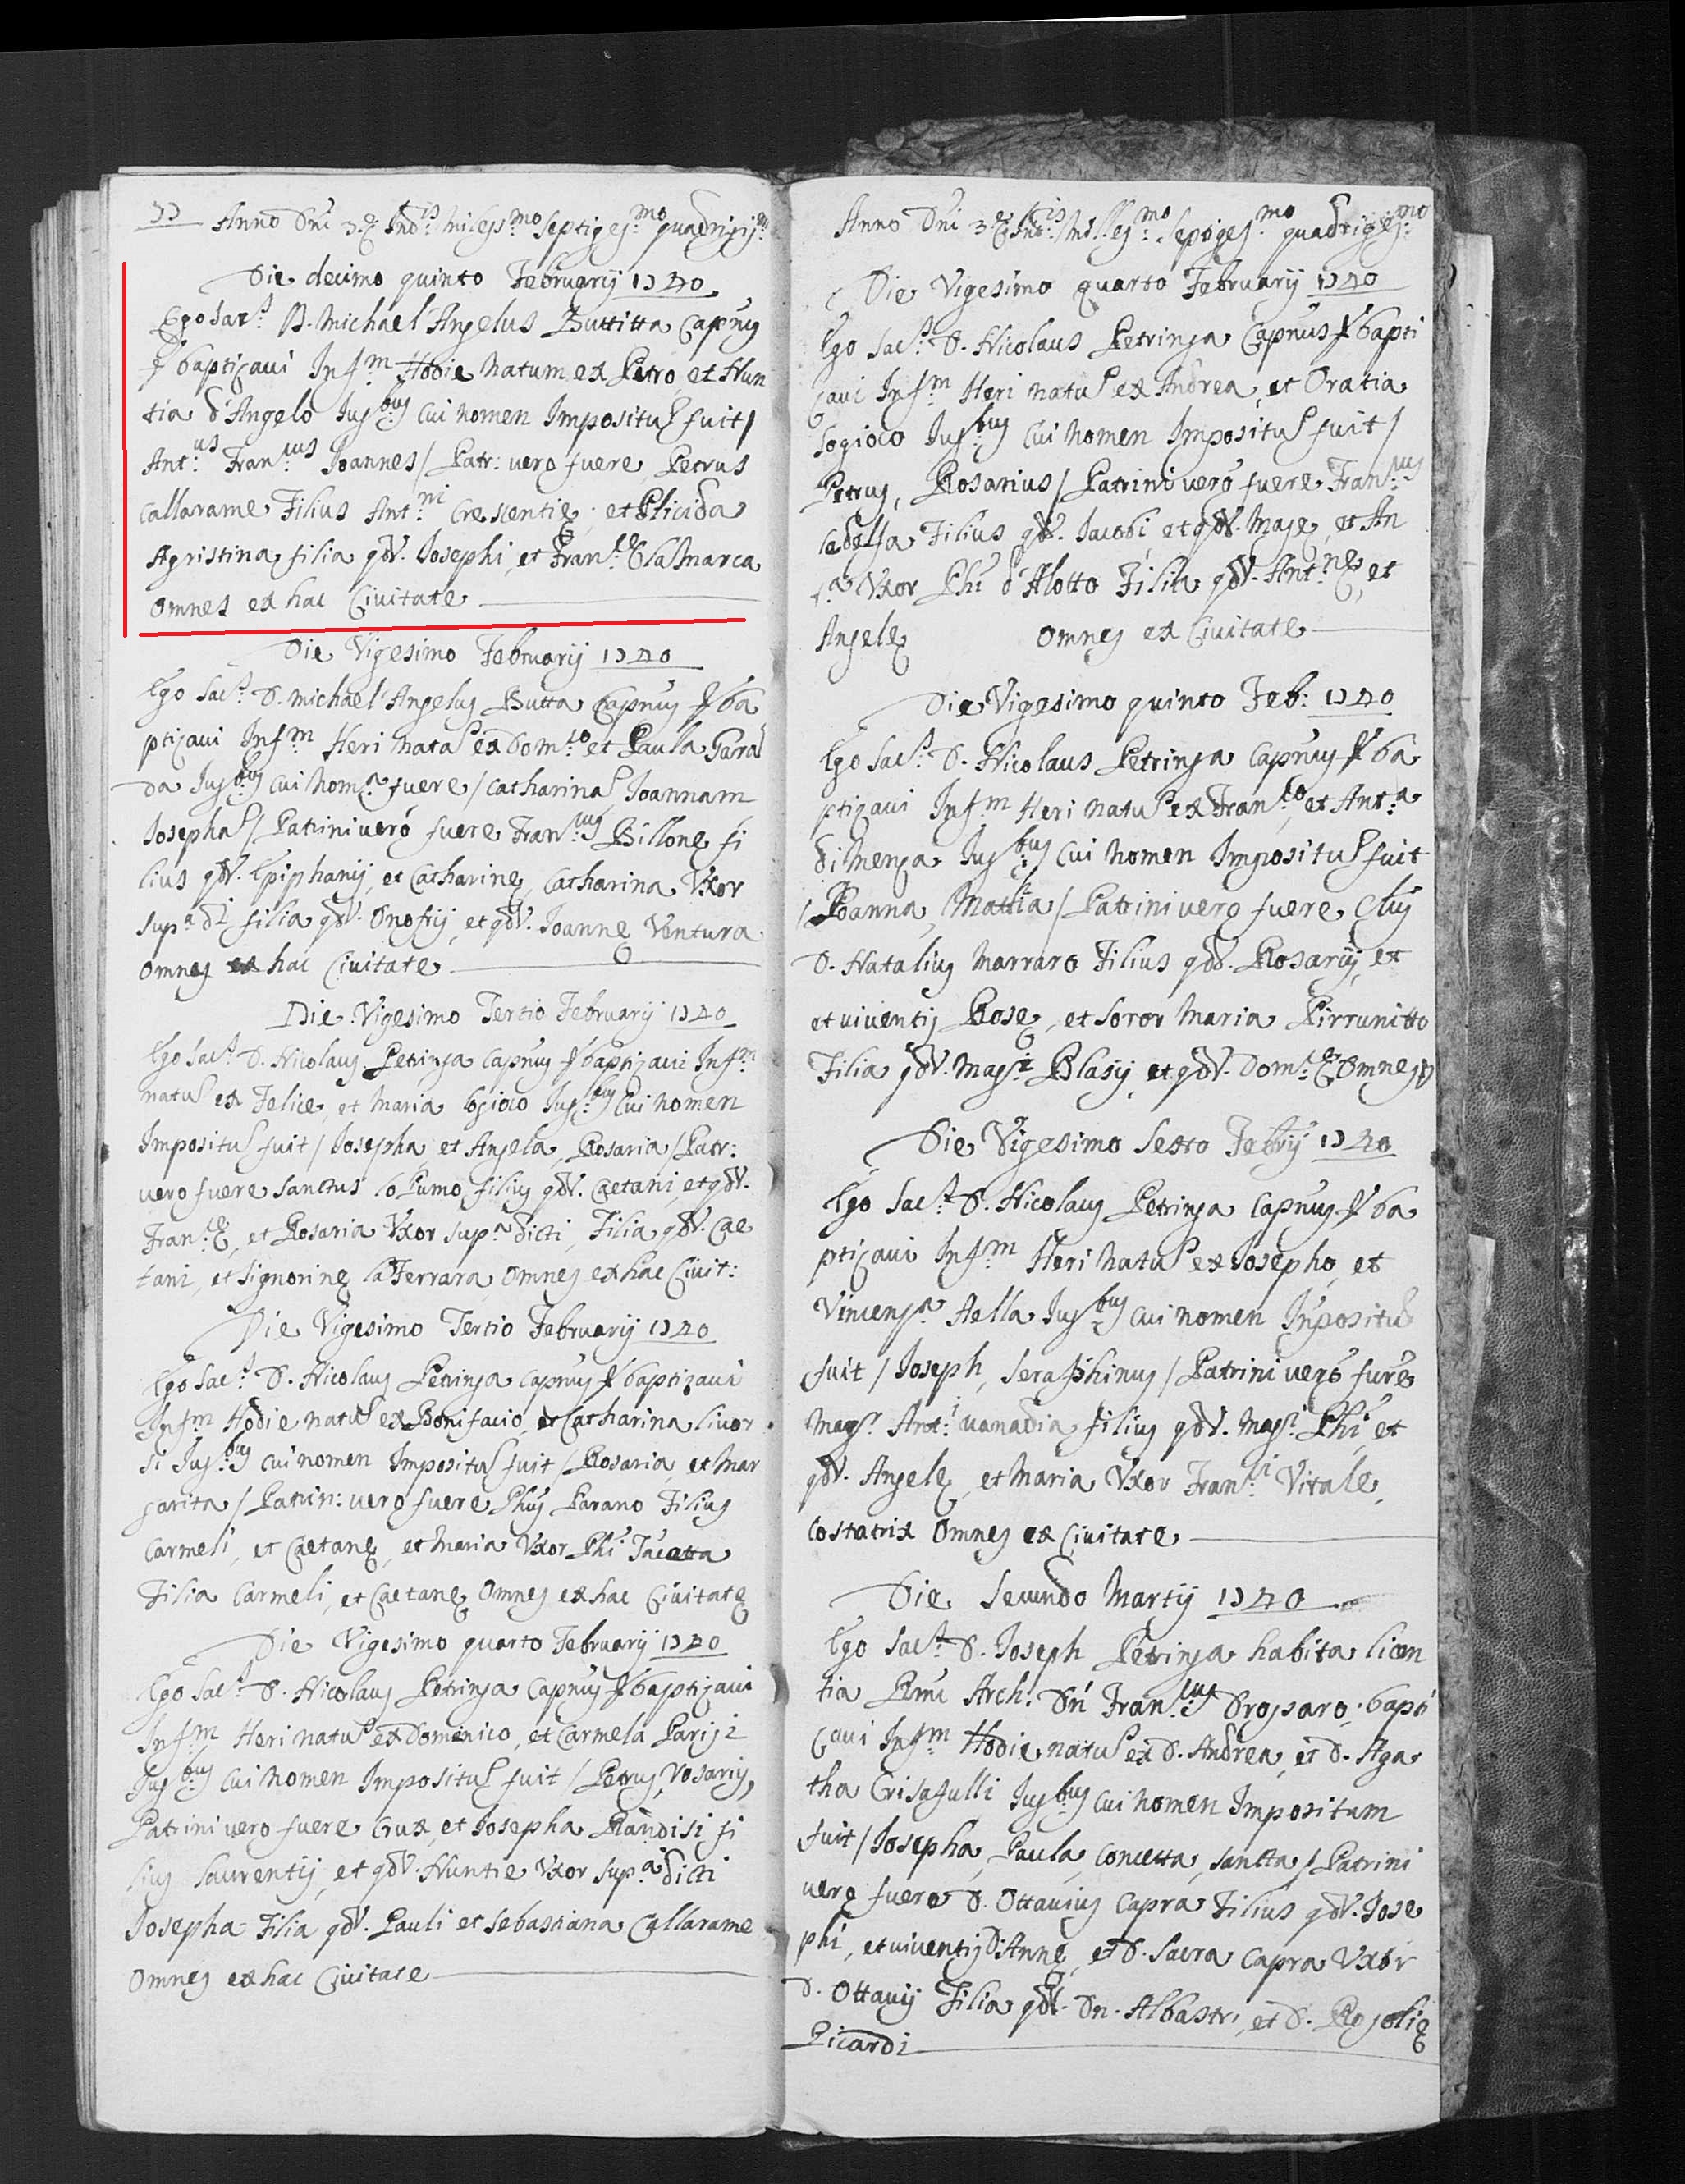 Anno Dñi 3.ę Ind:is milless:mo septiges:mo quadrigis:mo
Die decimo quinto Februarij 1740
Ego Sac:s D. Michael Angelus Buttitta Cap'nus
baptizavi Inf:m Hodie natum ex Petro et Nun
tia d'Angelo Jug:bus cui nomen Impositu fuit/
Ant:us Fran:cus Joannes/ Patr: vero fuere Petrus
Callarame Filius Ant:ni Crescentie, et Plicida
Agristina filia qdō. Josephi, et Fran:cę la Marca
Omnes ex hac Civitate
Die Vigesimo Februarij 1740
Ego Sac:s D. Michael Angelus Butta Cap'nus ba
ptizavi Inf:m Heri nata ex Dom:co et Paula Para
da Jug:bus cui nom:a fuere/ Catharina, Joannam
Josepha/ Patrini veró fuere Fran:cus Billone fi
lius qdō. Epiphanij, et Catharinę, Catharina Uxor
sup:a di filia qdō. Onofrij, et qdō. Joannę Ventura
Omnes ex hac Civitate
Die Vigesimo Tertio Februarij 1740
Ego Sac:s D. Nicolaus Petringa Cap'nus baptizavi Inf:m
natu ex Felice, et Maria Jug:bus Cui nomen
Impositu fuit/ Josepha et Angela, Rosaria/ Patr:
vero fuere Sanctus lo Pumo filius qdō. Caetani, et qdō.
Fran:cę, et Rosaria Uxor sup:a dicti, Filia qdō. Cae
tani, et Signorinę la Ferrara Omnes ex hac Civit:
Die Vigesimo Tertio Februarij 1740
Ego Sac:s D. Nicolaus Petringa Cap'nus baptizavi
Inf:m Hodie natu ex Bonifacio, et Catharina livor
si Jug:bus cui nomen Impositu fuit/ Rosaria, et Mar
garita/ Patrin: vero fuere Phus Parano Filius
Carmeli, et Caetanę, et Maria Uxor Phi Tacatta
Filia Carmeli, et Caetanę Omnes ex hac Civitate
Die Vigesimo quarto Februarij 1740
Ego Sac:s D. Nicolaus Petringa Cap'nus baptizavi
Inf:m Heri natu ex Domenico, et Carmela Parisi
Jug:bus cui nomen Impositu fuit/ Petrus, Rosarius,
Patrini vero fuere Crux, et Josepha Randisi fi
lius Laurentij, et qdō. Nuntie Uxor sup:a dicti
Josepha Filia qdō. Pauli et Sebastiana Callarame
Omnes ex hac Civitate
Anno Dñi 3.ę Ind:is Milles:mo Septiges:mo quadriges:mo
Die Vigesimo quarto Februarij 1740
Ego Sac:s D. Nicolaus Petringa Cap'nus bapti
zavi Inf:m Heri natu ex Andrea, et Oratia
Jug:bus cui nomen Impositu fuit/
Petrus, Rosarius/ Patrini vero fuere Fran:cus
filius qdō. Jacobi, et qdō. Maję, et An
:a Uxor Phi d'Alotto Filia qdō. Ant:nę, et
Angelę Omnes ex Civitate
Die Vigesimo quinto Feb: 1740
Ego Sac:s D. Nicolaus Petringa Cap'nus ba
ptizavi Inf:m Heri natu ex Fran:co, et Ant:a
di Menza Jug:bus cui nomen Impositu fuit
/Joanna, Mattia/ Patrini vero fuere Clus
D. Natalius Marraro Filius qdō. Rosarij, et
et viventis Rosę, et Soror Maria Pirrunitto
Filia qdō. Mag:ri Blasij, et qdō. Dom:cę Omnes
Die Vigesimo Sexto Febrij 1740
Ego Sac:s D. Nicolaus Petringa Cap'nus ba
ptizavi Inf:m Heri natu ex Josepho, et
Vincenza Aella Jug:bus cui nomen Inpositu
fuit/ Joseph, Seraphinus/ Patrini veró fure
Mag:r Ant:i vanadia filius qdō. Mag:ri Phi, et
qdō. Angelę, et Maria Uxor Fran:ci Vitale,
Costatrix Omnes ex Civitate
Die Secundo Martij 1740
Ego Sac:s D. Joseph Petringa habita licen
tia Rmi Arch: Dñi Fran:cus Drogsaro, bapti
zavi Inf:m Hodie natu ex D. Andrea, et D. Aga
tha Crisafulli Jug:bus cui nomen Impositum
fuit/ Josepha, Paula, Concetta, Sancta/ Patrini
vero fuere D. Ottavius Capra Filius qdō. Jose
phi, et viventis D. Annę, et D. Sacra Capra Uxor
D. Ottavij Filia qdō. Dn. Albastri, et D. Rosolię
Picardi